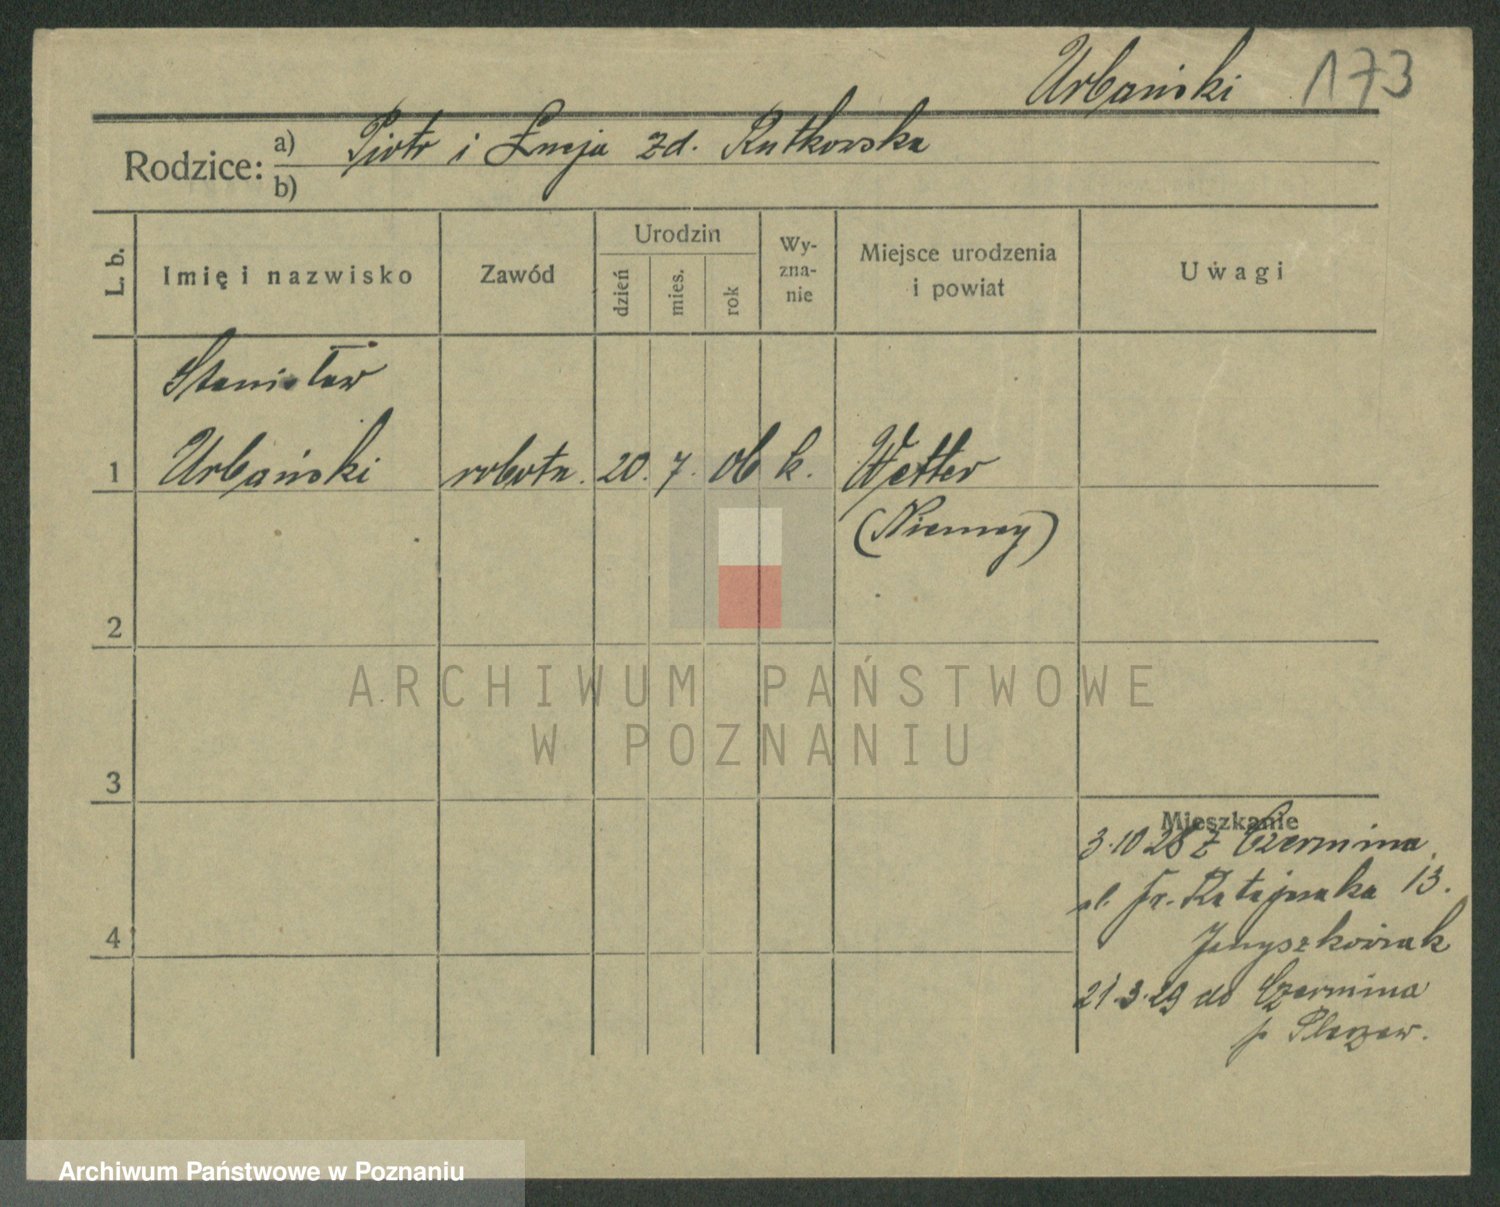 Urbański 173
Rodzice: a) Piotr i Łucja zd. Rutkowska
b)
L. b.
Imię i nazwisko
Zawód
Urodzin
dzień
mies.
rok
Wy-
zna-
nie
Miejsce urodzenia
i powiat
Uwagi
Stanisław
1 Urbański robotn. 20. 7. 06 k. Wetter
(Niemcy)
2
ARCHIWUM PAŃSTWOWE
W POZNANIU
3
Mieszkanie
3.10 28 z Czermina
ul. Fr. Ratajczaka 13.
4
Janyszkowiak
21.3.29 do Czermina
p Pleszew.
Archiwum Państwowe w Poznaniu